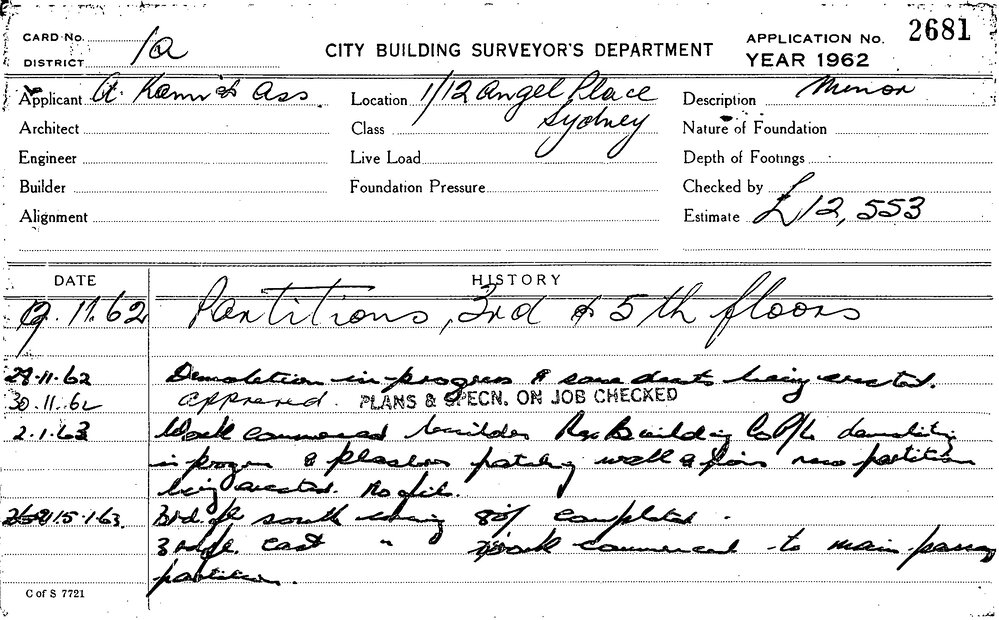 CARD No.
DISTRICT 1a
CITY BUILDING SURVEYOR'S DEPARTMENT
APPLICATION No. 2681
YEAR 1962
Applicant A. Kann & Ass
Location 1/12 Angel Place
Sydney
Description Minor
Architect
Class
Nature of Foundation
Engineer
Live Load
Depth of Footings
Builder
Foundation Pressure
Checked by
Alignment
Estimate £12,553
DATE
HISTORY
9.11.62 Partitions, 3rd & 5th floors
28.11.62 Demolition in progress & some ducts being erected.
30.11.62 approved. PLANS & SPECN. ON JOB CHECKED
2.1.63 Work commenced builder Rex Building Co P/L demolition
in progress & plasterers patching wall & floors new partition
being erected. No file.
15.1.63. 3rd. fl south 80% completed.
3rd fl. East " work commenced to main passage
partition.
C of S 7721